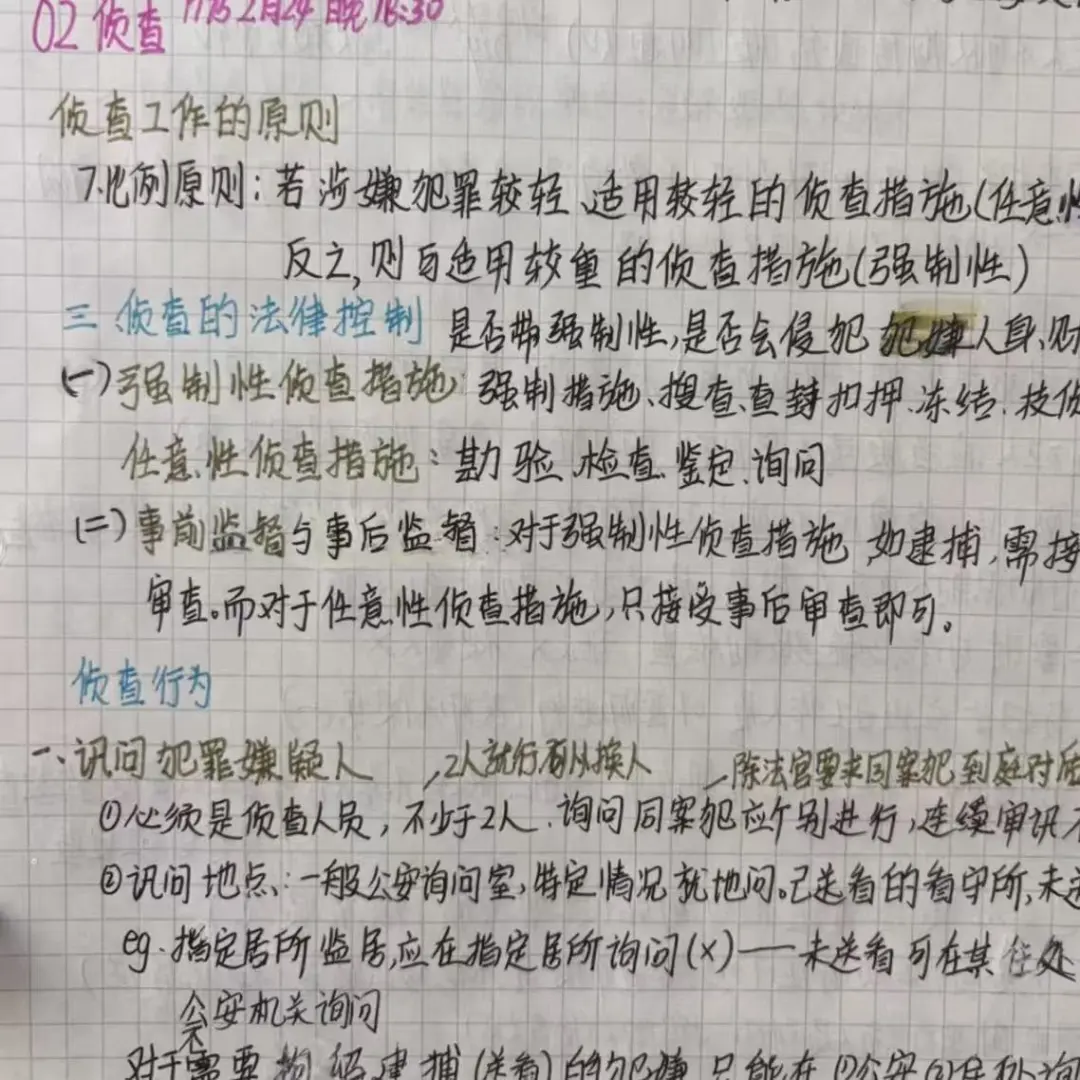 02 侦查 2月24日晚 18:30
侦查工作的原则
7.比例原则：若涉嫌犯罪较轻、适用较轻的侦查措施(任意性
反之,则可适用较重的侦查措施(强制性)
三、侦查的法律控制 是否带强制性,是否会侵犯犯嫌人身、财
(一)强制性侦查措施：强制措施、搜查、查封扣押、冻结、技侦
任意性侦查措施：勘验、检查、鉴定、询问
(二)事前监督与事后监督：对于强制性侦查措施,如逮捕,需接
审查。而对于任意性侦查措施,只接受事后审查即可。
侦查行为
一、讯问犯罪嫌疑人 ,2人就行可以换人 ,除法官要求同案犯到庭对质
①必须是侦查人员,不少于2人.询问同案犯应个别进行,连续审讯不
②讯问地点：一般公安询问室,特定情况就地问。已送看的看守所,未送
eg.指定居所监居,应在指定居所询问(×)——未送看可在其住处
公安机关询问
对于需要拘留逮捕(送看)的犯嫌 只能在